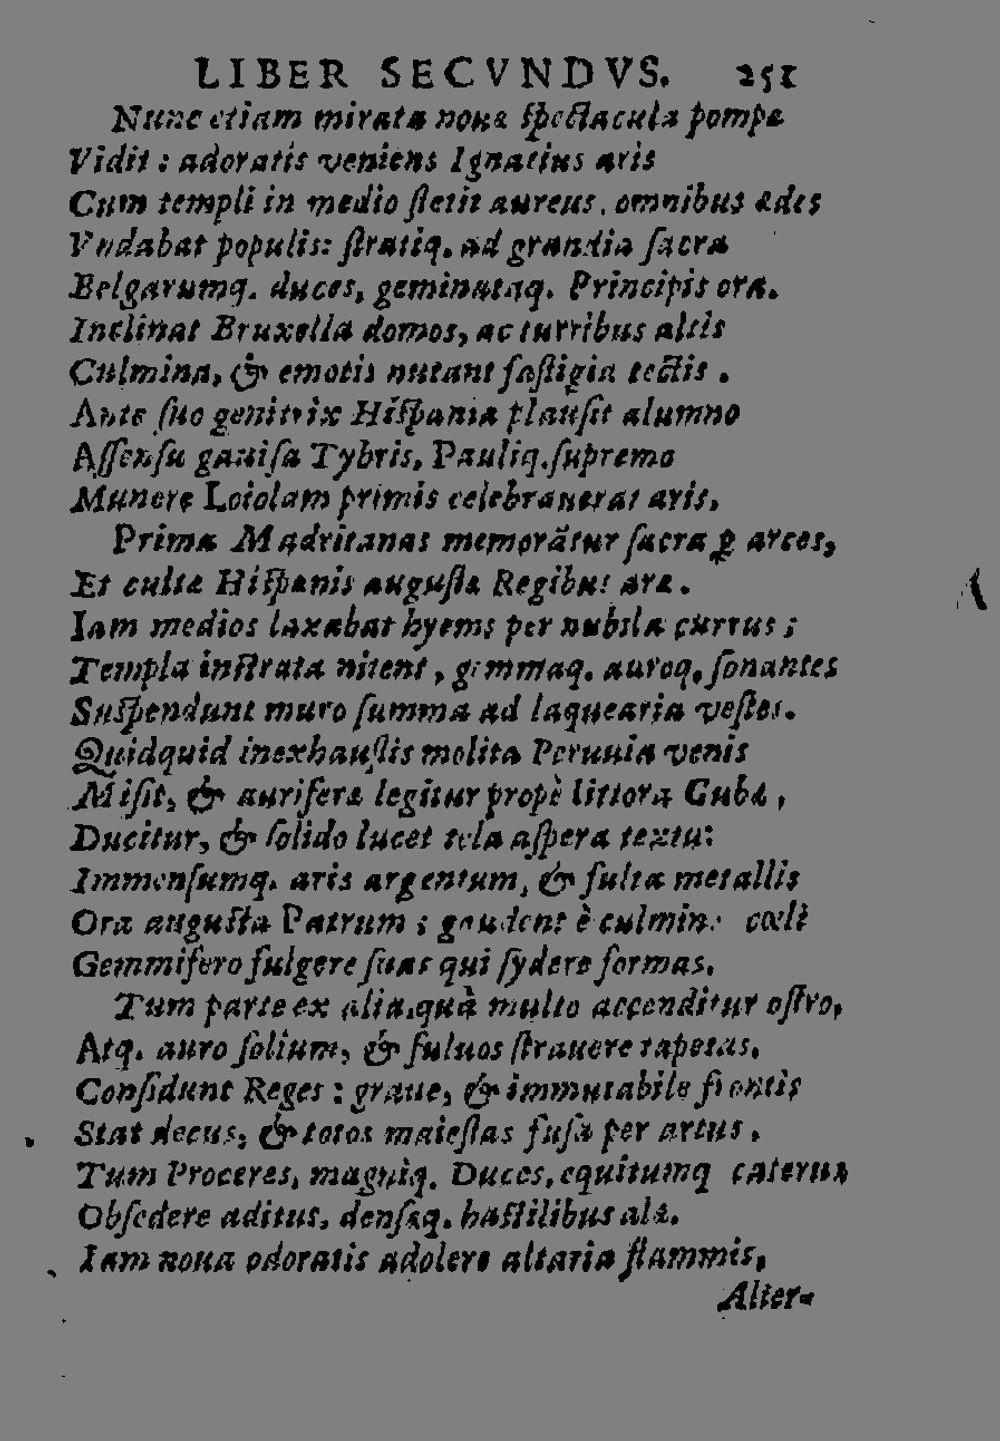 LIBER SECVNDVS. 251
Nunc etiam mirata nouæ ſpectacula pompæ
Vidit : adoratis veniens Ignatius aris
Cum templi in medio ſtetit aureus, omnibus ædes
Vndabat populis: ſtratiq. ad grandia ſacra
Belgarumq. duces, geminataq. Principis ora.
Inclinat Bruxella domos, ac turribus altis
Culmina, & emotis nutant faſtigia tectis .
Ante ſuo genitrix Hiſpania plauſit alumno
Aſſenſu gauiſa Tybris, Pauliq. ſupremo
Munere Loiolam primis celebrauerat aris.
Prima Madritanas memorãtur ſacra ꝑ arces,
Et cultæ Hiſpanis auguſta Regibus aræ .
Iam medios laxabat hyems per nubila currus ;
Templa inſtrata nitent , gemmaq. auroq. ſonantes
Suſpendunt muro ſumma ad laquearia veſtes.
Quidquid inexhauſtis molita Peruuia venis
Miſit, & auriferæ legitur propè littora Cubæ ,
Ducitur, & ſolido lucet tela aſpera textu:
Immenſumq. aris argentum, & fulta metallis
Ora auguſta Patrum ; gaudent è culmine cœli
Gemmifero fulgere ſuas qui ſydere formas.
Tum parte ex alia, quà multo accenditur oſtro,
Atq. auro ſolium, & fuluos ſtrauere tapetas,
Conſidunt Reges : graue, & immutabile frontis
Stat decus, & totos maieſtas fuſa per artus .
Tum Proceres, magniq. Duces, equitumq caterua
Obſedere aditus, denſæq. haſtilibus alæ.
Iam noua odoratis adolere altaria flammis,
Alter-